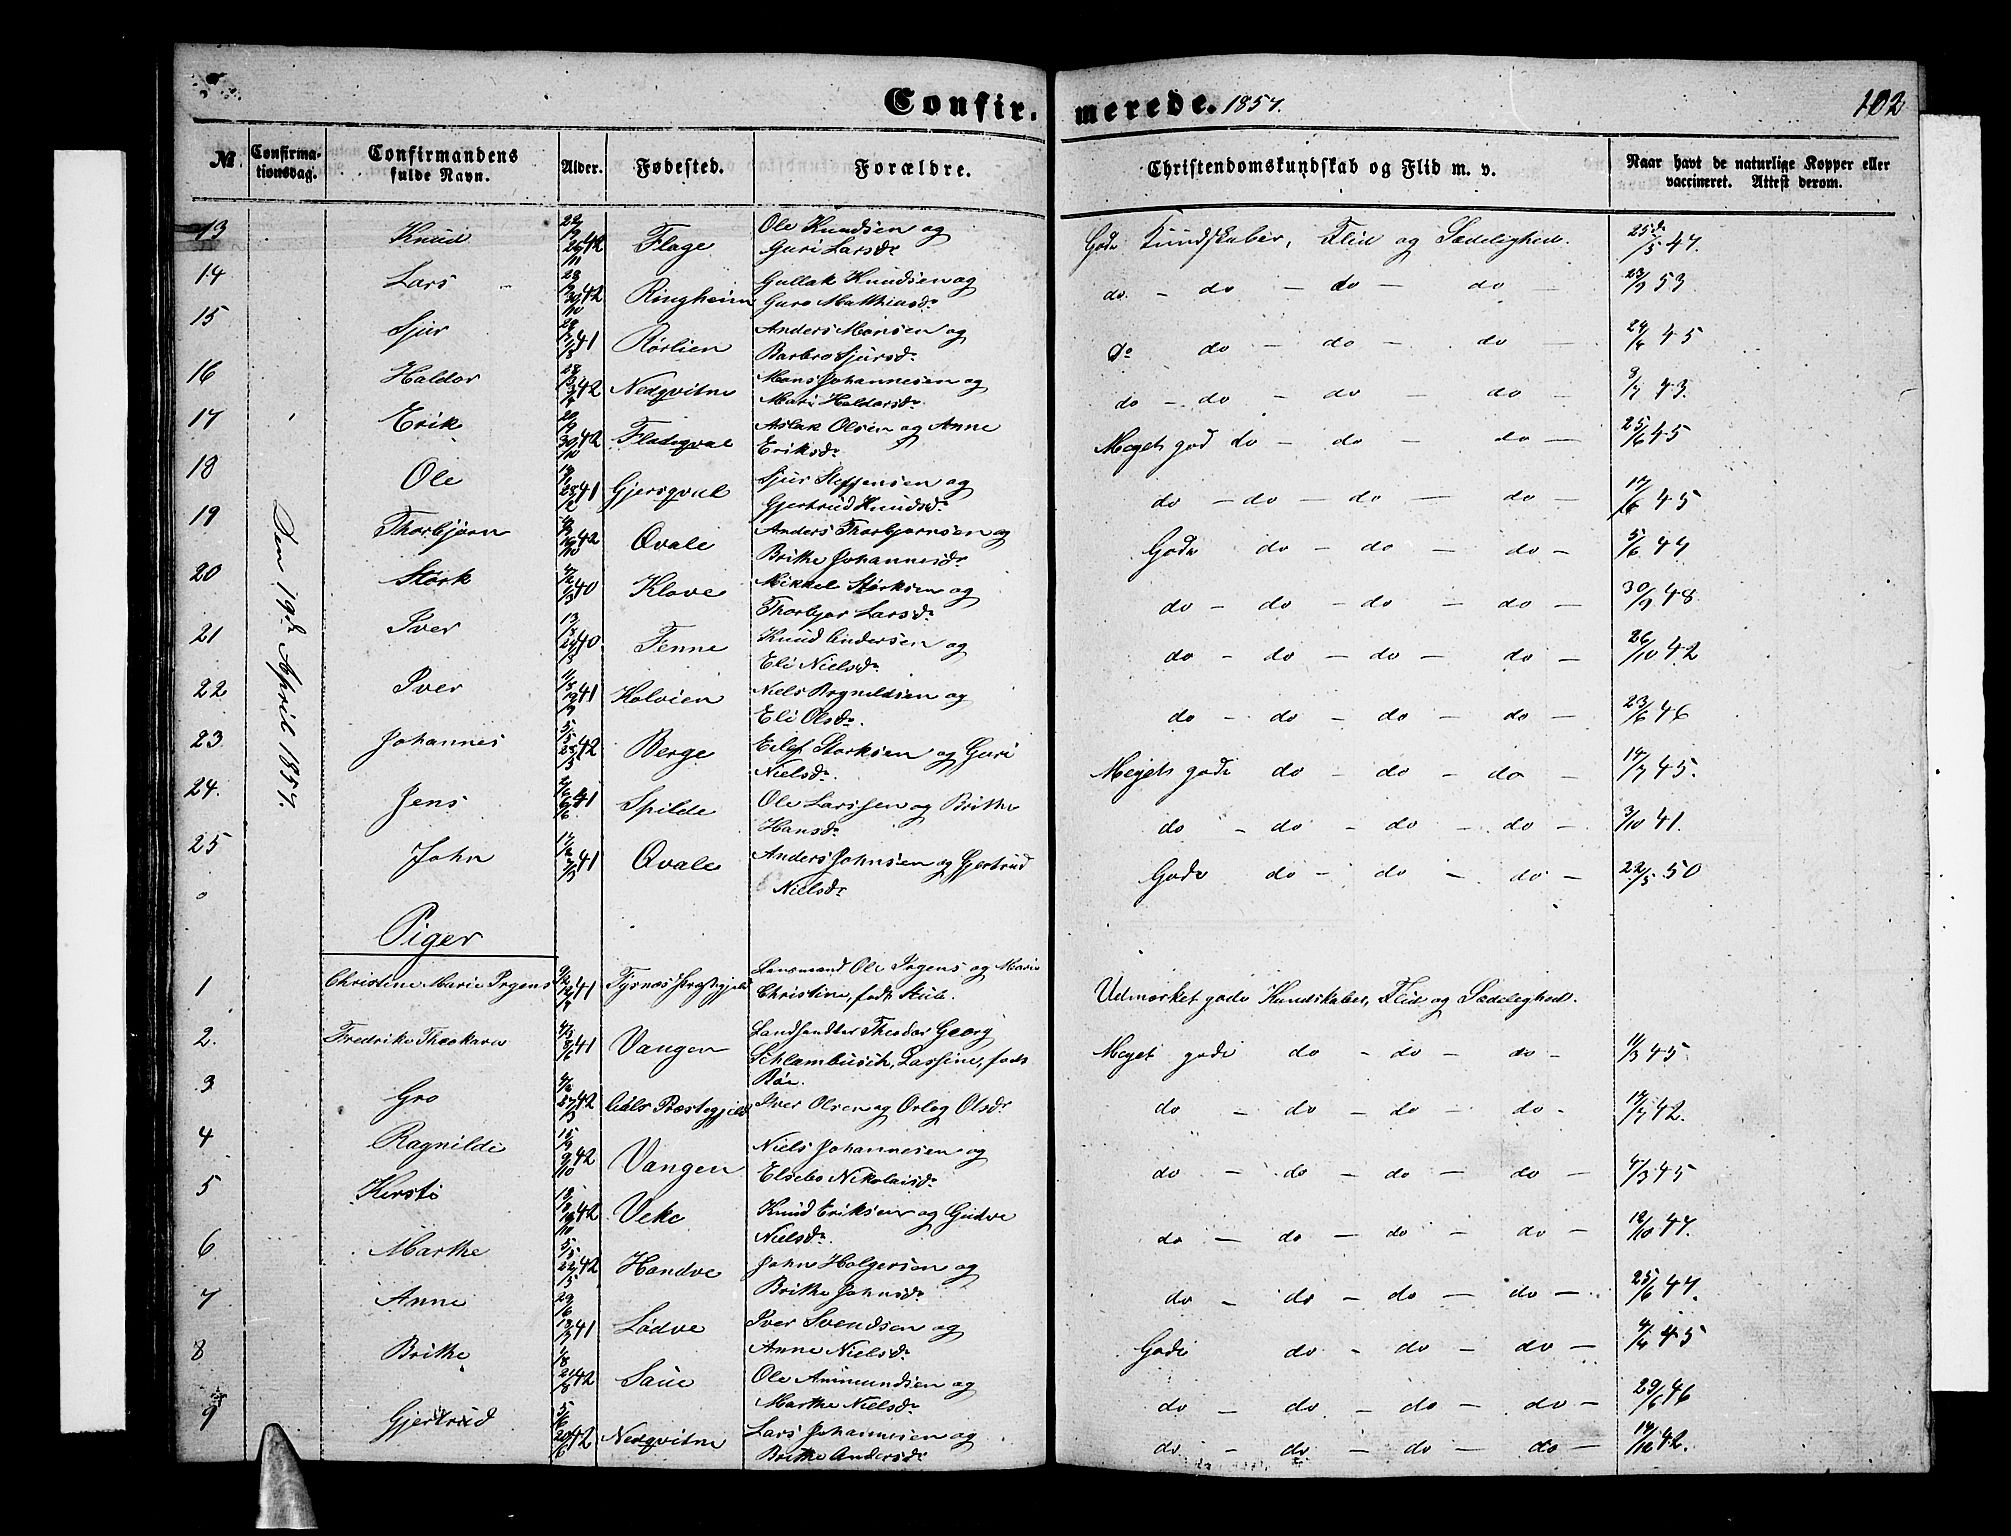 Confirmerede. 1857. 102
No. Confirmationsdag. Confirmandens fulde Navn. Alder. Fødested. Forældre. Christendomskundskab og Flid m. v. Naar havt de naturlige Kopper eller vaccineret. Attest derom.
Den 19de April 1857.
13 Knud 42 Flage Ole Knudsen og Guri Larsdr Gode Kundskaber, Flid og Sædelighed. 25/5 47.
14 Lars 42 Ringheim Gullak Knudsen og Guro Matthiasdr do - do - do - do - 53
15 Sjur 41 Rørlien Anders Monsen og Barbro Sjursdr do do - do - do - 45
16 Haldor 42 Nedqvitne Mons Johannesen og Mari Haldorsdr do - do - do - do - 43.
17 Erik 42 Aslak Olsen og Anne Eriksdr Meget god do - do - do - 25/6 45
18 Ole 41 Gjersqval Sjur Steffensen og Gjertrud Knudsdr do - do - do - do - 17/6 45
19 Thorbjørn 42 Qvale Anders Thorbjørnsen og Brithe Johannesdr Gode do - do - do - 5/6 47
20 Størk 40 Klove Mikkel Størksen og Thorbjor Larsdr do - do - do - do - 30/9 48.
21 Iver 40 Tenne Knud Andersen og Eli Nielsdr do - do - do - do - 26/10 42
22 Iver 41 Holvien Niels Bryneldsen og Eli Olsdr. do - do - do - do - 23/6 46
23 Johannes 42 Berge Eilef Størksen og Guri Nielsdr. Meget gode do - do - do - 17/7 45.
24. Jens 41 Spilde Ole Larssen og Brithe Hansdr do - do - do - do - 3/10 41.
25 John 41 Qvale Anders Johnsen og Gjertrud Nielsdr Gode do - do - do - 22/5 50
Piger
1 Christine Marie Irgens 41 Tysnæs Præstegjeld Lensmand Ole Irgens og Marie Christine, født Stub. Udmærket gode Kundskaber, Flid og Sædelighed.
2. Fredrike Theokare 41 Vangen Landhandler Theodor Georg Schlambusch, Lassine, født Bøe. Meget gode do - do - do - 11/3 45
3 Gro 42 Aals Præstegjeld Iver Olsen og Orlog Olsdr do - do - do - do - 17/7 42.
4 Ragnilde 42 Vangen Niels Johannesen og Elsebe Nikolaisdr do - do - do - do - 4/3 45
5 Kirsti 42 Veke Knud Eriksen og Gudve Nielsdr. do - do - do - do - 12/10 47.
6 Marthe 42 Handve John Holgersen og Brithe Johnsdr do - do - do - do - 25/6 47.
7 Anne 41 Lødve Iver Svendsen og Anne Nielsdr. Gode do - do - do - 45
8 Brithe 42 Saue Ole Ammundsen og Marthe Nielsdr do - do - do - do - 29/6 46
9 Gjertrud 42 Nedqvitne Lars Johannesen og Brithe Andersdr do - do - do - do - 14/10 42.